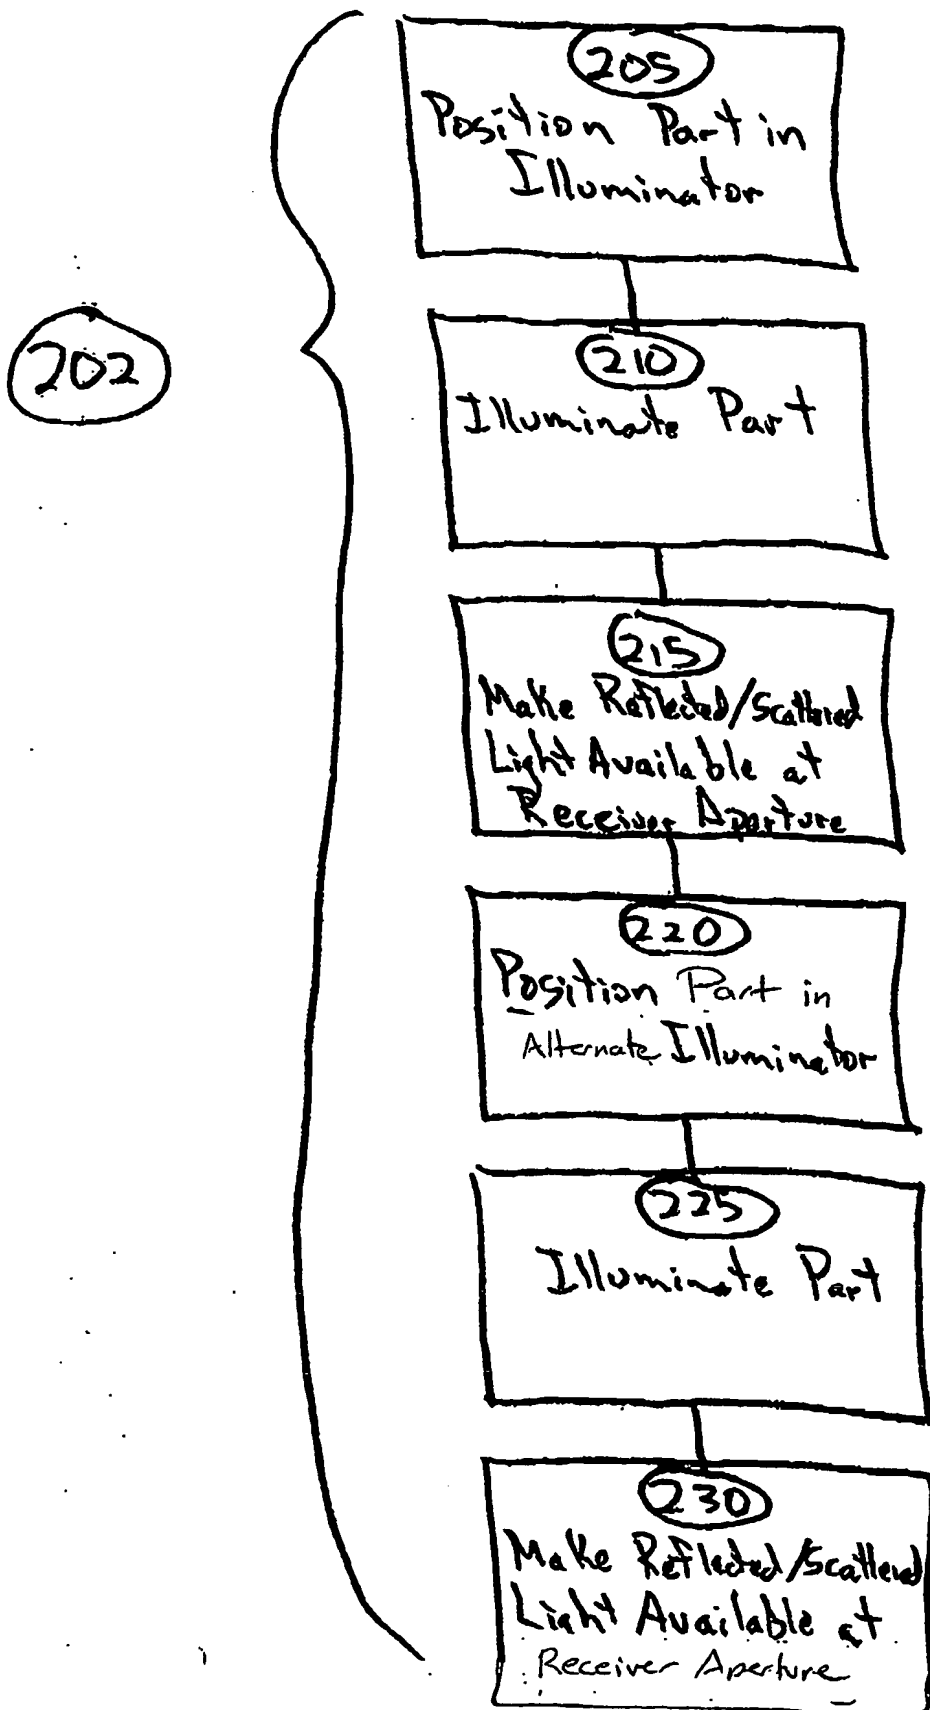 202
205
Position Part in
Illuminator
210
Illuminate Part
215
Make Reflected/Scattered
Light Available at
Receiver Aperture
220
Position Part in
Alternate Illuminator
225
Illuminate Part
230
Make Reflected/Scattered
Light Available at
Receiver Aperture